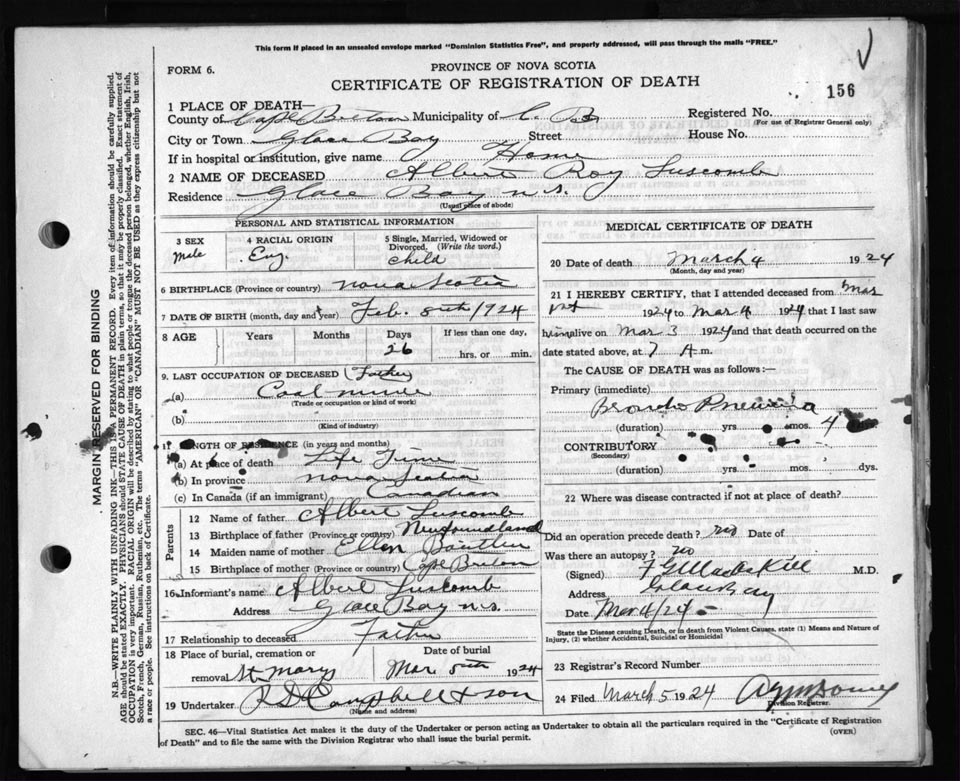 This form if placed in an unsealed envelope marked "Dominion Statistics Free", and properly addressed, will pass through the mails "FREE."
FORM 6.
PROVINCE OF NOVA SCOTIA
CERTIFICATE OF REGISTRATION OF DEATH
156
1 PLACE OF DEATH—
County of Cape Breton Municipality of C. B. Registered No.
(For use of Registrar General only)
City or Town Glace Bay Street House No.
If in hospital or institution, give name Home
2 NAME OF DECEASED Albert Roy Luscomb
Residence Glace Bay N.S.
(Usual place of abode)
PERSONAL AND STATISTICAL INFORMATION
3 SEX Male
4 RACIAL ORIGIN Eng.
5 Single, Married, Widowed or Divorced. (Write the word.) Child
6 BIRTHPLACE (Province or country) Nova Scotia
7 DATE OF BIRTH (month, day and year) Feb. 8th 1924
8 AGE Years Months Days 26 If less than one day, hrs. or min.
9. LAST OCCUPATION OF DECEASED (Father)
(a) Coal mine
(Trade or occupation or kind of work)
(b)
(Kind of industry)
LENGTH OF RESIDENCE (in years and months)
(a) At place of death Life Time
(b) In province Nova Scotia
(c) In Canada (if an immigrant) Canadian
Parents
12 Name of father Albert Luscomb
13 Birthplace of father (Province or country) Newfoundland
14 Maiden name of mother Ellen
15 Birthplace of mother (Province or country) Cape Breton
16 Informant's name Albert Luscomb
Address Glace Bay N.S.
17 Relationship to deceased Father
18 Place of burial, cremation or removal St. Marys
Date of burial Mar 5th 1924
19 Undertaker Campbell & Son
(Name and address)
MEDICAL CERTIFICATE OF DEATH
20 Date of death March 4 1924
(Month, day and year)
21 I HEREBY CERTIFY, that I attended deceased from Mar
1st 1924 to Mar 4 1924 that I last saw
him alive on Mar 3 1924 and that death occurred on the
date stated above, at 7 A.m.
The CAUSE OF DEATH was as follows:—
Primary (immediate)
Broncho Pneumonia
(duration) yrs. mos. 4
CONTRIBUTORY
(Secondary)
(duration) yrs. mos. dys.
22 Where was disease contracted if not at place of death?
Did an operation precede death? no Date of
Was there an autopsy? no
(Signed) M.D.
Address Glace Bay
Date Mar 4/24
State the Disease causing Death, or in death from Violent Causes, state (1) Means and Nature of
Injury, (2) whether Accidental, Suicidal or Homicidal
23 Registrar's Record Number
24 Filed March 5 1924
Division Registrar.
SEC. 46—Vital Statistics Act makes it the duty of the Undertaker or person acting as Undertaker to obtain all the particulars required in the "Certificate of Registration
of Death" and to file the same with the Division Registrar who shall issue the burial permit.
(OVER)
MARGIN RESERVED FOR BINDING
N.B.—WRITE PLAINLY WITH UNFADING INK—THIS IS A PERMANENT RECORD. Every item of information should be carefully supplied.
AGE should be stated EXACTLY. PHYSICIANS should STATE CAUSE OF DEATH in plain terms, so that it may be properly classified. Exact statement of
OCCUPATION is very important. RACIAL ORIGIN will be described by stating to what people or tongue the deceased person belonged, whether English, Irish,
Scotch, French, German, Russian, Ruthenian, etc. The terms "AMERICAN" or "CANADIAN" MUST NOT BE USED as they express citizenship but not
a race or people. See instructions on back of Certificate.